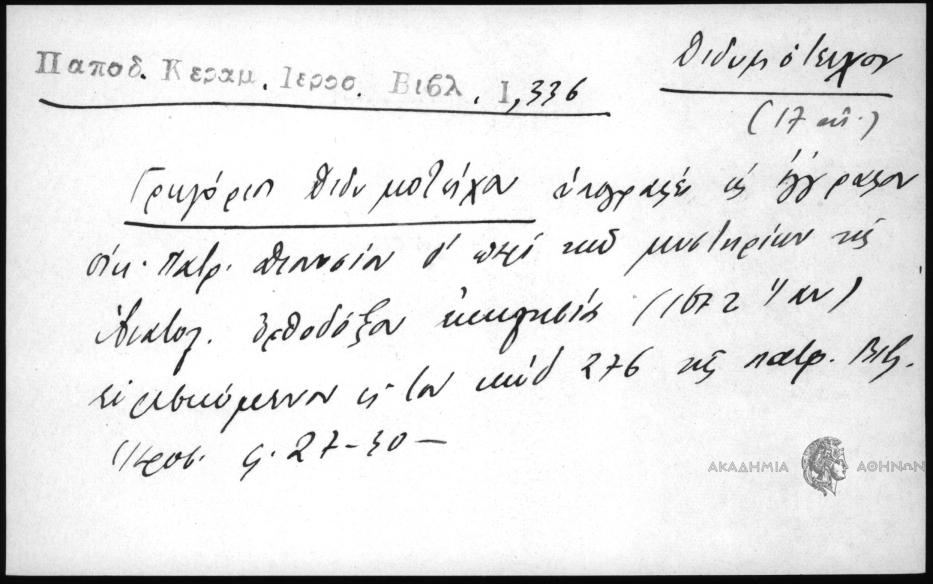 Παποδ. Κεραμ. Ιερος. Βιβλ. Ι, 336
Διδυμότειχον
(17 αἰ.)
Γρηγόριος Διδυμοτείχου ὑπογράφει εἰς ἔγγραφον
οἰκ. Πατρ. Διονυσίου δ' περὶ τῶν μυστηρίων τῆς
Ἀνατολ. Ὀρθοδόξου ἐκκλησίας (1672 Ἰαν)
εὑρισκόμενον εἰς τὸν κώδ 276 τῆς πατρ. Βιβ.
Ἱεροσ. φ. 27-30 —
ΑΚΑΔΗΜΙΑ ΑΘΗΝΩΝ